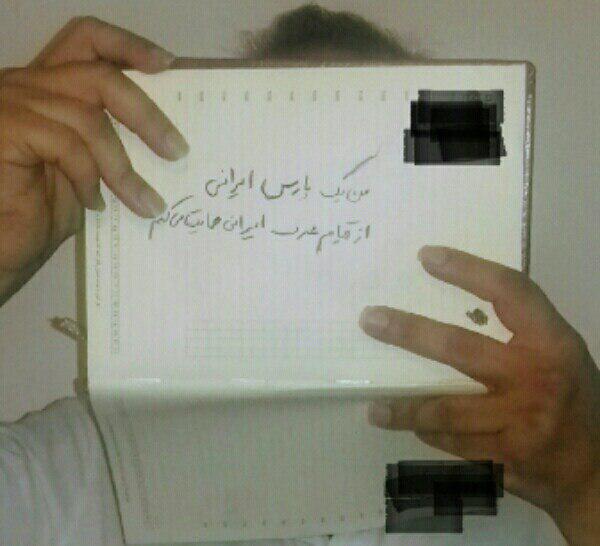 من یک پارس ایرانی
از قیام عرب ایرانی حمایت می کنم